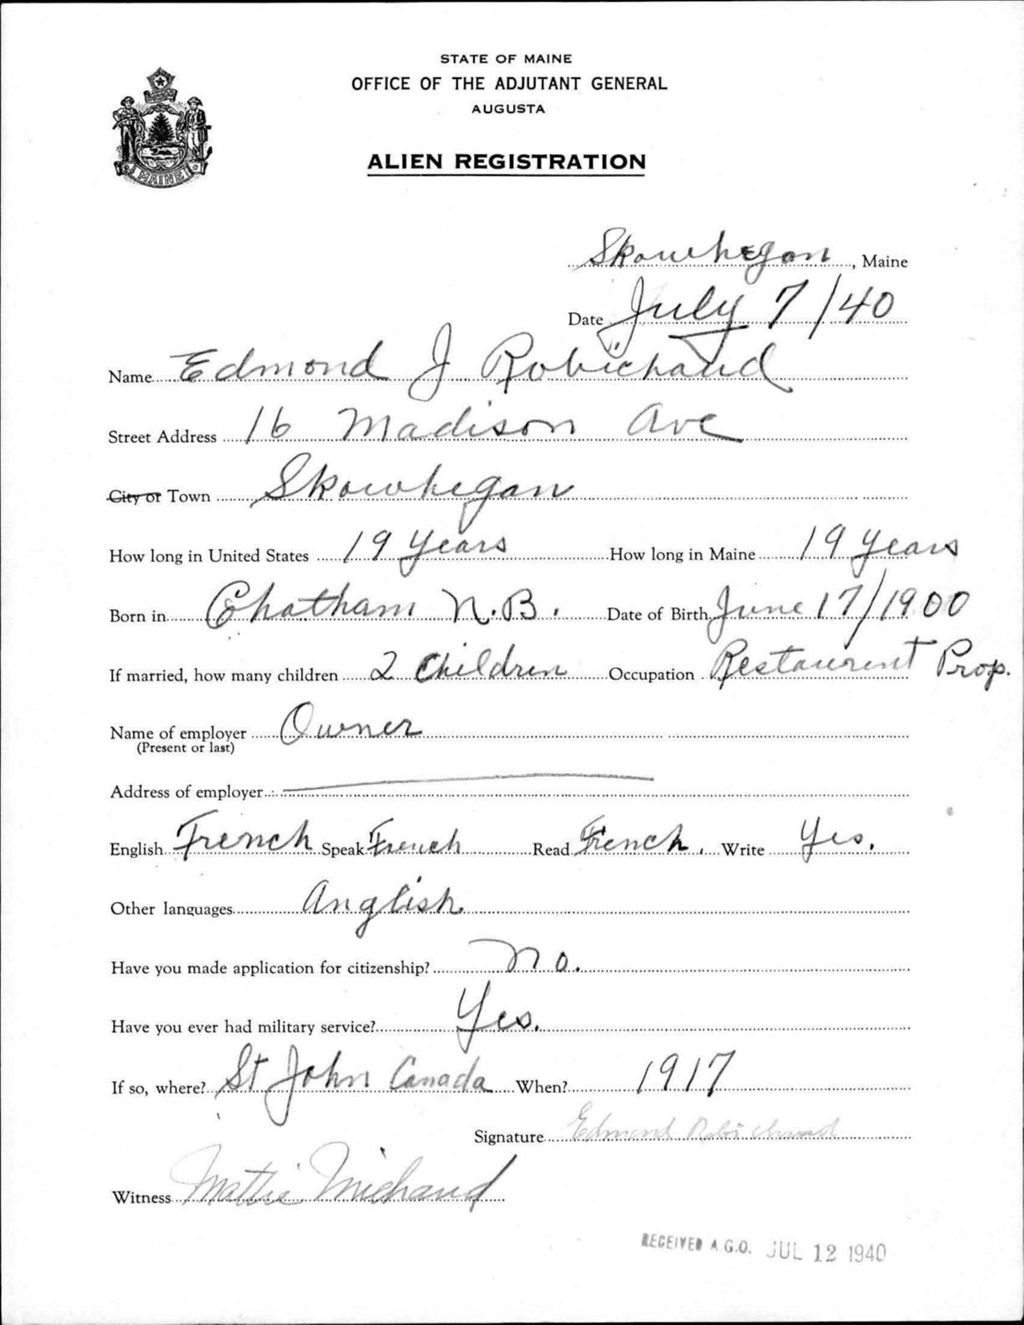 STATE OF MAINE
OFFICE OF THE ADJUTANT GENERAL
AUGUSTA
ALIEN REGISTRATION
MAINE
Skowhegan, Maine
Date July 7/40
Name Edmond J Robichaud
Street Address 16 Madison Ave
City or Town Skowhegan
How long in United States 19 Years How long in Maine 19 Years
Born in Chatham N.B. Date of Birth June 17/1900
If married, how many children 2 Children Occupation Restaurent Prop.
Name of employer Owner
(Present or last)
Address of employer
English French Speak French Read French. Write Yes.
Other languages Anglish.
Have you made application for citizenship? No.
Have you ever had military service? Yes.
If so, where? St John Canada When? 1917
Signature Edmond Robichaud
Witness Mattie Michaud
RECEIVED A.G.O. JUL 12 1940